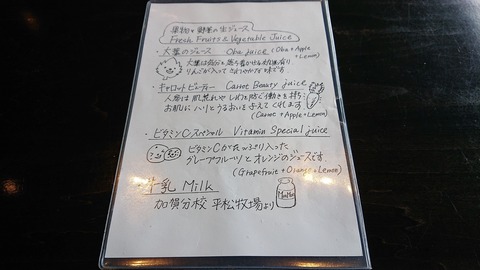 果物と野菜の生ジュース
Fresh Fruits & Vegetable Juice
・大葉のジュース Oba juice (Oba + Apple + Lemon)
大葉は気分を落ち着かせる効果有り
りんごが入ってさわやかな味です
・キャロットビューティー Carrot Beauty juice
人参は肌荒れやしわを防ぐ働きを持ち
お肌にハリとうるおいを与えてくれます
(Carrot + Apple + Lemon)
・ビタミンCスペシャル Vitamin Special juice
ビタミンCがたっぷり入った
グレープフルーツとオレンジのジュースです
(Grapefruit + Orange + Lemon)
・牛乳 Milk
加賀分校 平松牧場より